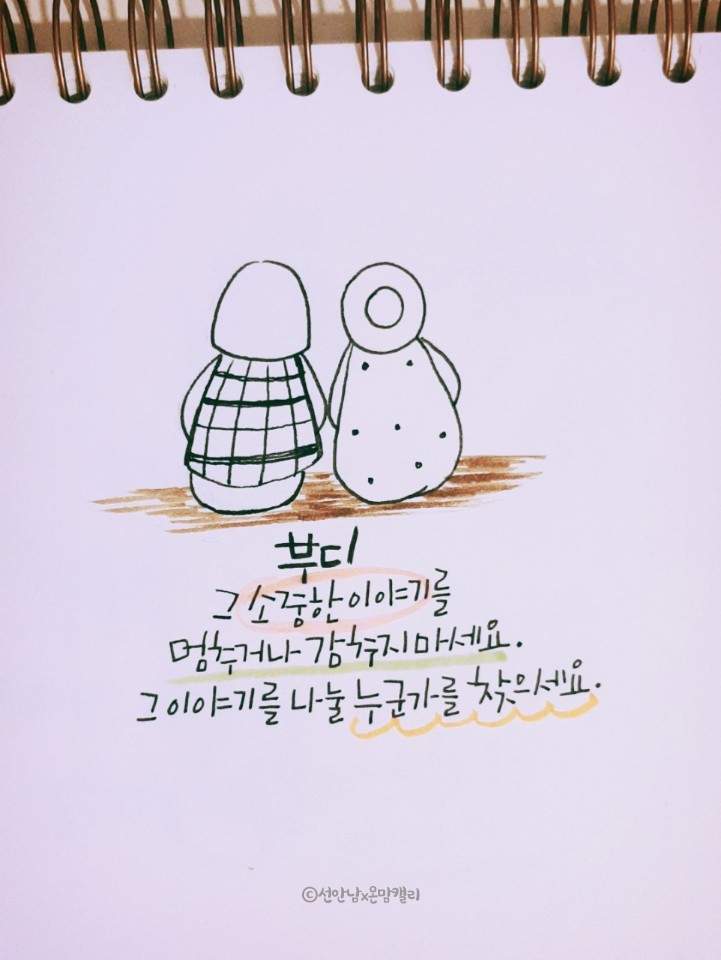 부디
그 소중한 이야기를
멈추거나 감추지 마세요.
그 이야기를 나눌 누군가를 찾으세요.
©선안남x온맘캘리